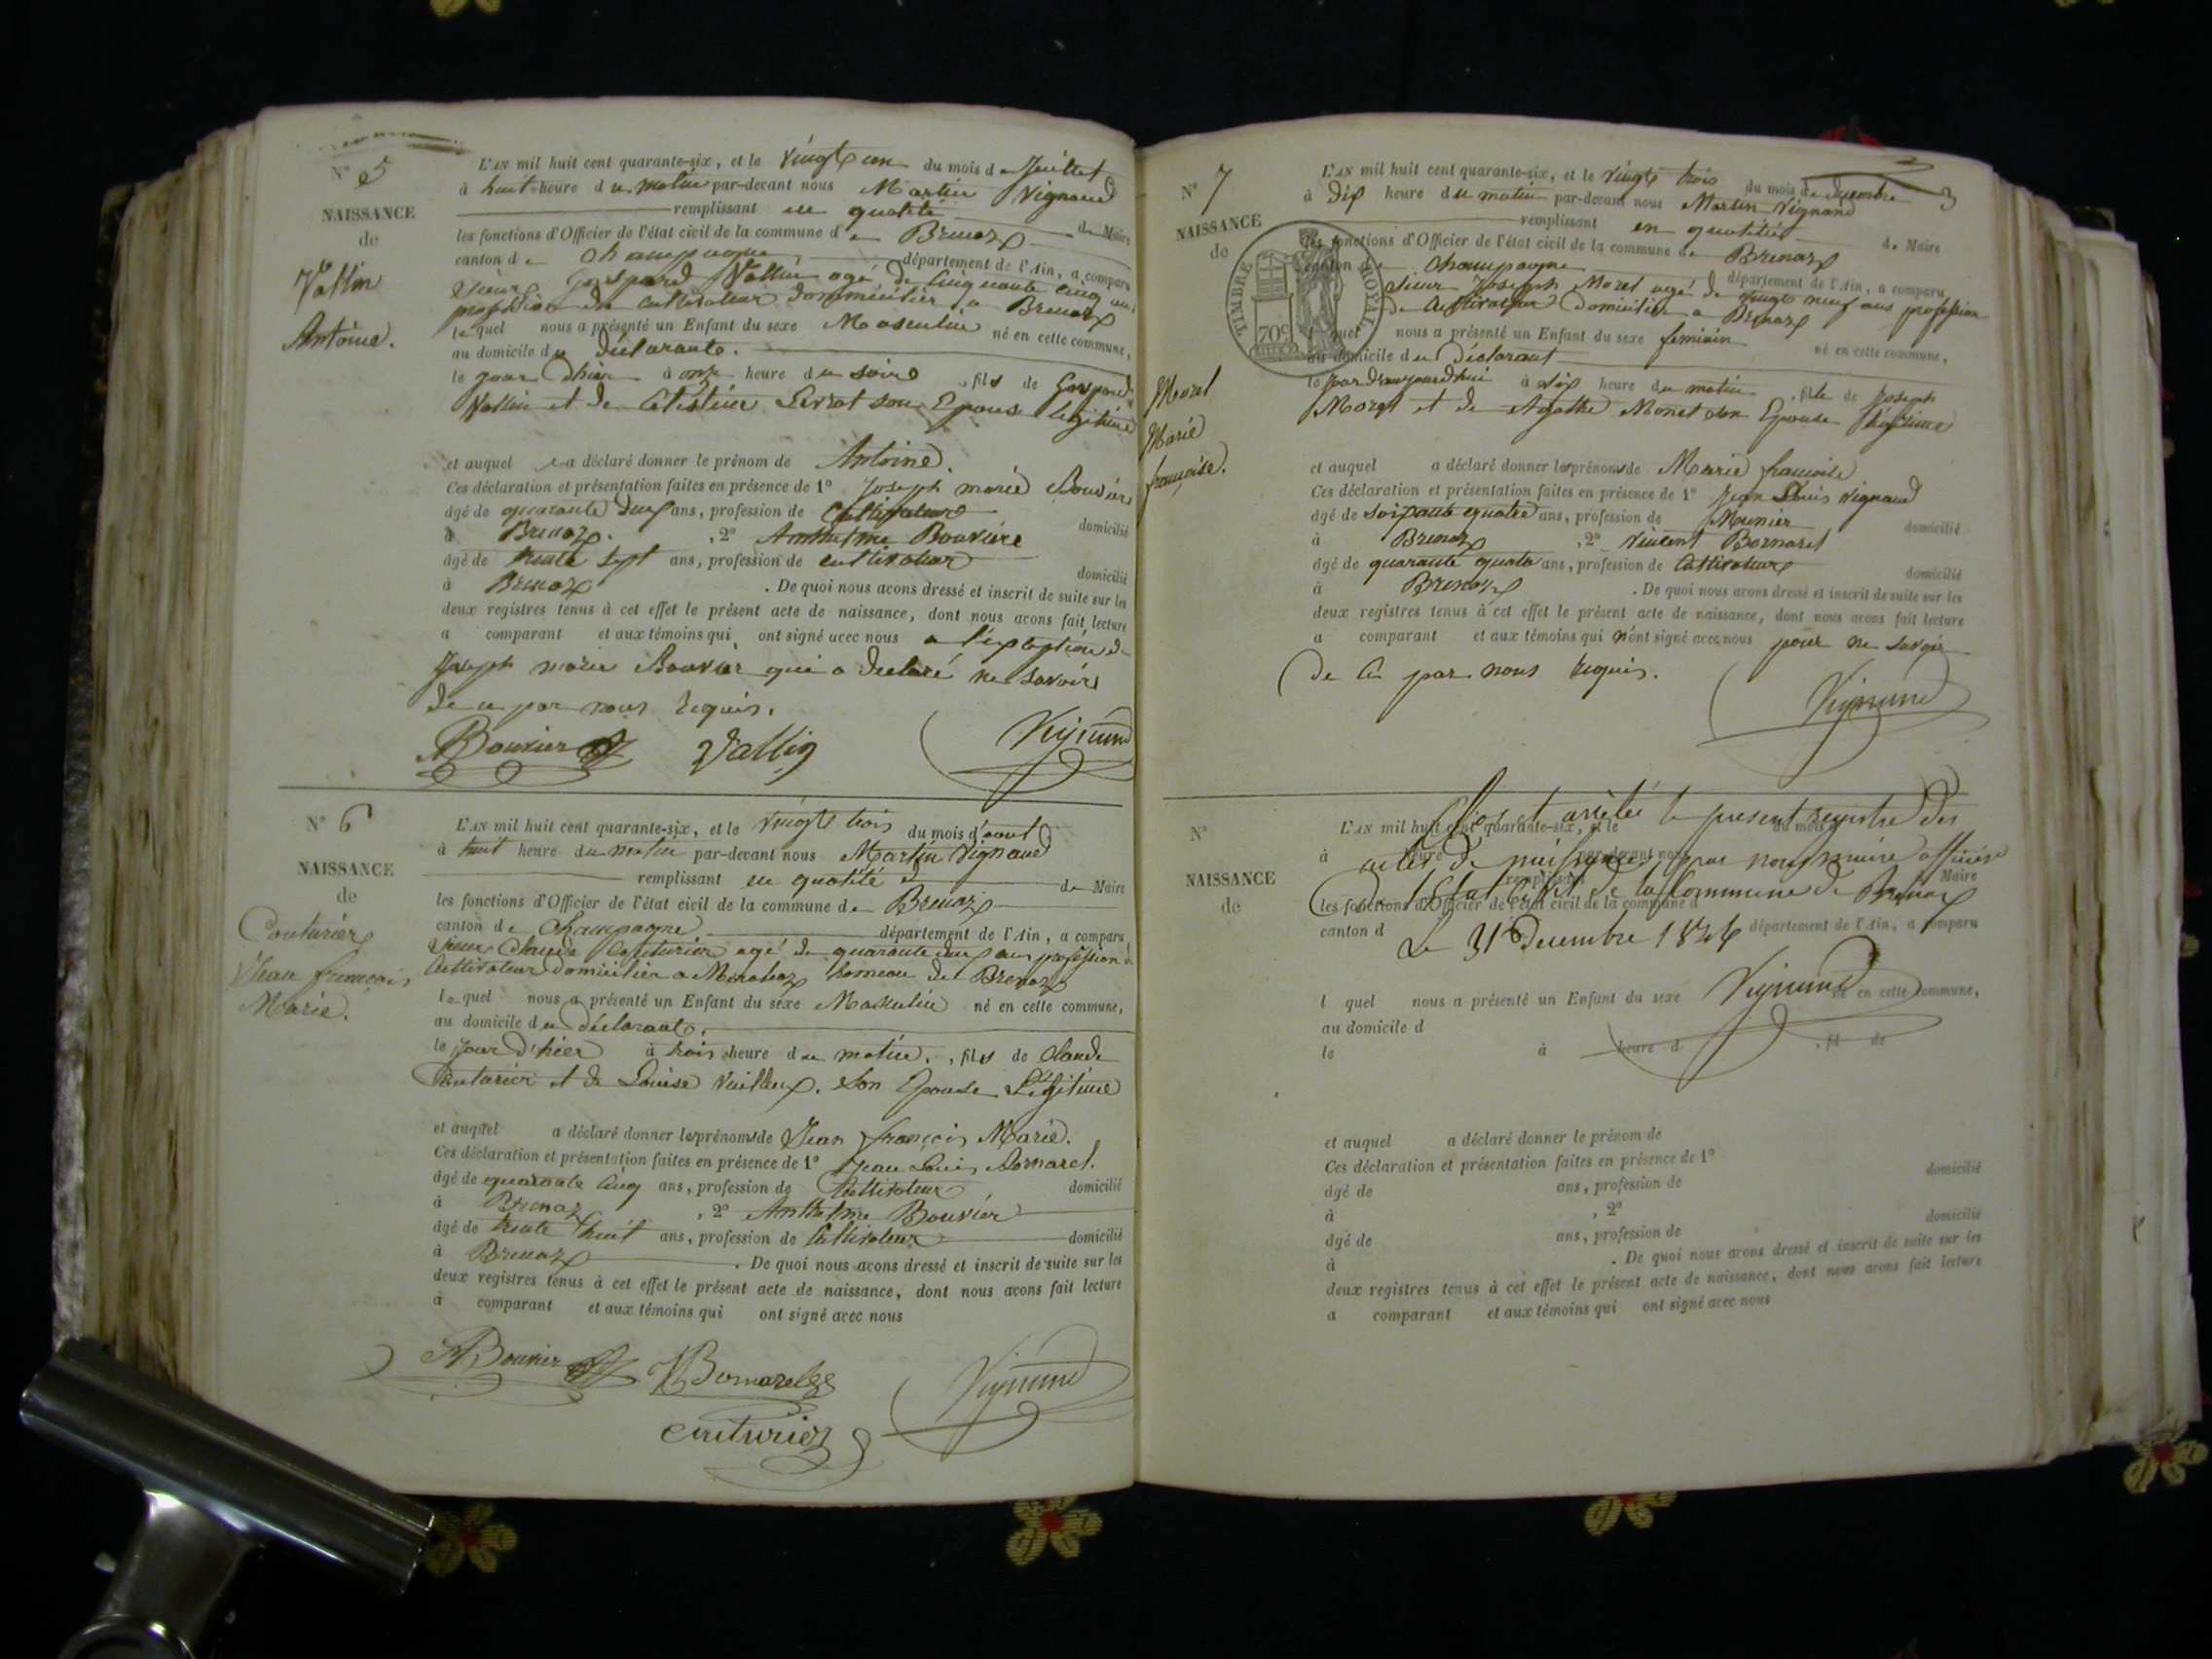 N° 5
NAISSANCE
de
Vallin
Antoine.
L'AN mil huit cent quarante-six, et le vingt un du mois de Juillet
à huit heure du matin par-devant nous Martin Vignand
remplissant en qualité de Maire
les fonctions d'Officier de l'état civil de la commune de Brenaz
canton de Champagne département de l'Ain, a comparu
Sieur Gaspard Vallin agé de Cinquante cinq ans
profession de Cultivateur domicilier a Brenaz
lequel nous a présenté un Enfant du sexe Masculin né en cette commune,
au domicile du déclarant.
le jour d'hier à onze heure du soire, fils de Gaspard
Vallin et de Célestine Serrat son Epouse légitime
et auquel a déclaré donner le prénom de Antoine.
Ces déclaration et présentation faites en présence de 1° Joseph marie Bouvier
âgé de quarante deux ans, profession de Cultivateur domicilié
à Brenaz. , 2° Anthelme Bouvier
âgé de trente sept ans, profession de cultivateur domicilié
à Brenaz . De quoi nous avons dressé et inscrit de suite sur les
deux registres tenus à cet effet le présent acte de naissance, dont nous avons fait lecture
a comparant et aux témoins qui ont signé avec nous a l'exception de
Joseph marie Bouvier qui a declaré ne savoir
de ce par nous requis.
Bouvier Vallin Vignand
N° 6
NAISSANCE
de
Couturier
Jean françois
Marie.
L'AN mil huit cent quarante-six, et le vingt trois du mois d'aout
à huit heure du matin par-devant nous Martin Vignand
remplissant en qualité de Maire
les fonctions d'Officier de l'état civil de la commune de Brenaz
canton de Champagne département de l'Ain, a comparu
Sieur Claude Couturier agé de quarante deux ans profession de
Cultivateur domicilier a hameau de Brenaz
lequel nous a présenté un Enfant du sexe Masculin né en cette commune,
au domicile du déclarant.
le jour d'hier à trois heure du matin, fils de Claude
Couturier et de Louise Vuilleux. son Epouse Légitime
et auquel a déclaré donner les prénoms de Jean françois Marie.
Ces déclaration et présentation faites en présence de 1° Jean Louis Bornarel.
âgé de quarante cinq ans, profession de Cultivateur domicilié
à Brenaz , 2° Anthelme Bouvier
âgé de trente huit ans, profession de Cultivateur domicilié
à Brenaz . De quoi nous avons dressé et inscrit de suite sur les
deux registres tenus à cet effet le présent acte de naissance, dont nous avons fait lecture
à comparant et aux témoins qui ont signé avec nous
A Bouvier Bornarel Vignand
couturier
3
N° 7
NAISSANCE
de
Moret
Marie
françoise.
TIMBRE ROYAL
70c
L'AN mil huit cent quarante-six, et le vingt trois du mois de decembre
à dix heure du matin par-devant nous Martin Vignand
remplissant en qualité de Maire
les fonctions d'Officier de l'état civil de la commune de Brenaz
canton de Champagne département de l'Ain, a comparu
Sieur Joseph Moret agé de vingt neuf ans profession
de Cultivateur domicilier a Brenaz
lequel nous a présenté un Enfant du sexe feminin né en cette commune,
au domicile du Déclarant
le Jour d'aujourdhui à six heure du matin, fille de Joseph
Moret et de Agathe Monet son Epouse légitime
et auquel a déclaré donner les prénoms de Marie françoise
Ces déclaration et présentation faites en présence de 1° Jean Louis Vignand
âgé de soixante quatre ans, profession de Meunier domicilié
à Brenaz , 2° Vincent Bornarel
âgé de quarante quatre ans, profession de Cultivateur domicilié
à Brenaz . De quoi nous avons dressé et inscrit de suite sur les
deux registres tenus à cet effet le présent acte de naissance, dont nous avons fait lecture
a comparant et aux témoins qui n'ont signé avec nous pour ne savoir
de ce par nous requis.
Vignand
N°
NAISSANCE
de
L'AN mil huit cent quarante-six, et le du mois
Clos et arrêté le present registre des
actes de naissance, par nous maire officier
de l'Etat Civil de la Commune de Brenaz
les fonctions d'Officier de l'état civil de la commune d
canton d département de l'Ain, a comparu
Le 31 Decembre 1846
Vignand
l quel nous a présenté un Enfant du sexe né en cette commune,
au domicile d
le à heure d , fil de
et auquel a déclaré donner le prénom de
Ces déclaration et présentation faites en présence de 1°
âgé de ans, profession de domicilié
à , 2°
âgé de ans, profession de domicilié
à . De quoi nous avons dressé et inscrit de suite sur les
deux registres tenus à cet effet le présent acte de naissance, dont nous avons fait lecture
a comparant et aux témoins qui ont signé avec nous